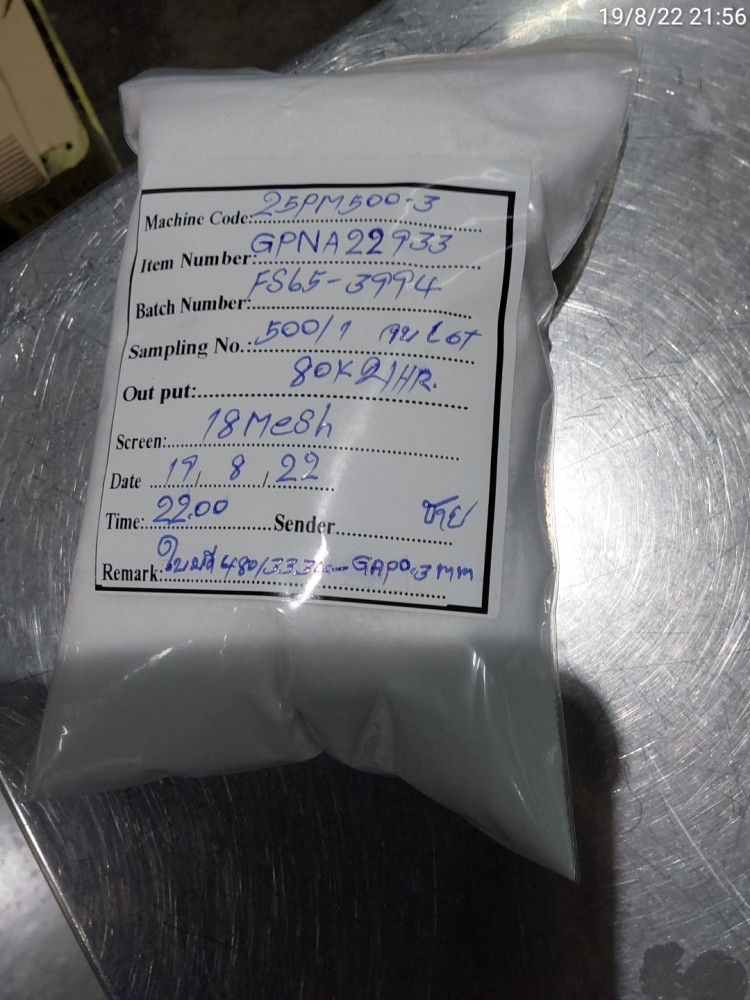 19/8/22 21:56
Machine Code: 25PM500-3
Item Number: GPNA22933
Batch Number: FS65-3994
Sampling No.: 500/1 จบ Lot
Out put: 80K2/HR.
Screen: 18Mesh
Date 19/ 8 / 22
Time: 22.00 Sender ชาย
Remark: ใบมีด 480/33.3 GAP0.3mm